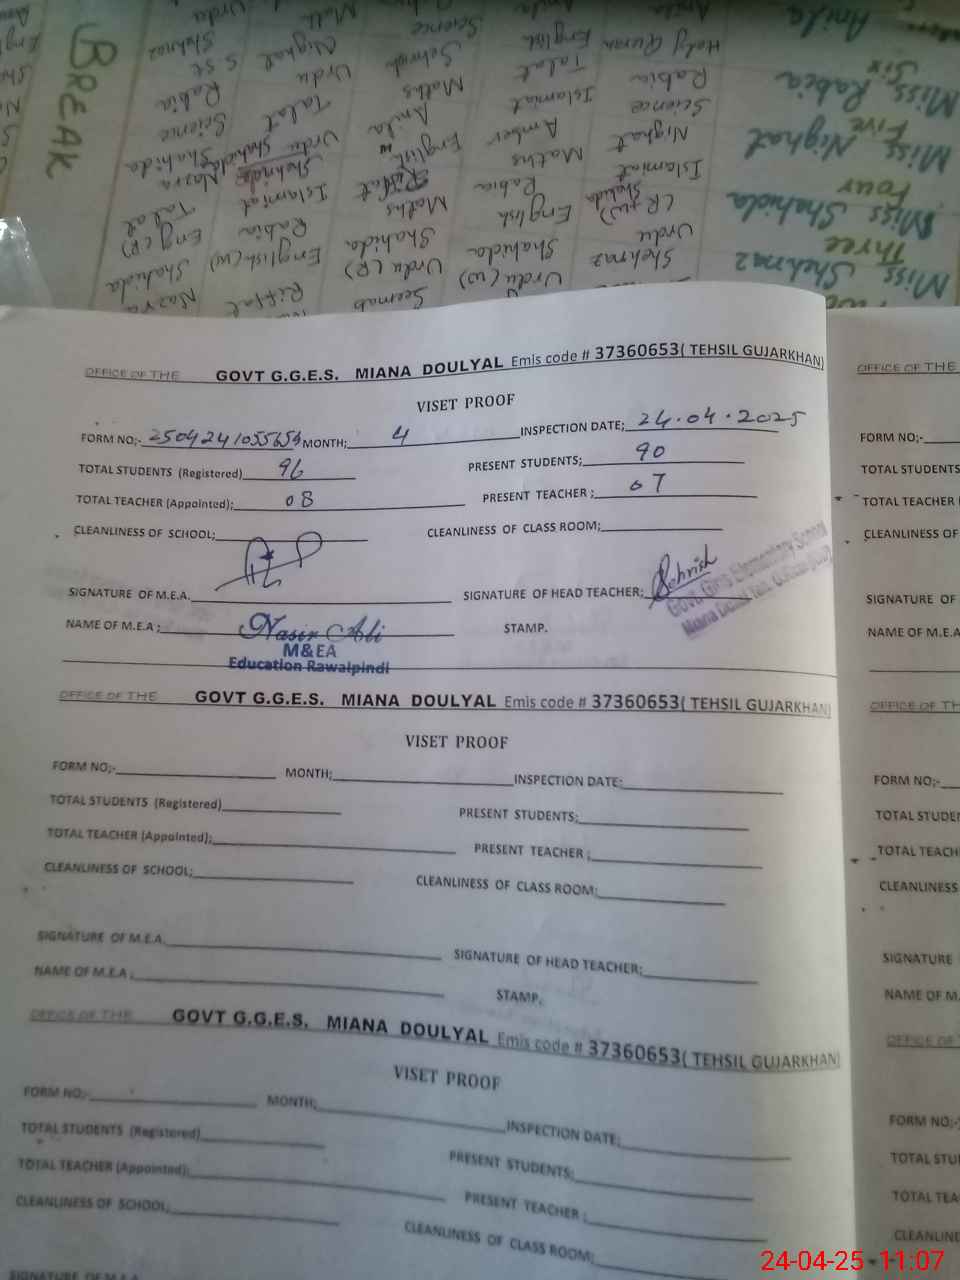 BREAK
Miss Rabia
Six
Miss Nighat
Five
Miss Shahida
Four
Miss Shehnaz
Three
Anila
Holy Quran
Rabia
Science
Nighat
Islamiat
Shahida
(R+W)
Urdu
Shehnaz
English
Talat
Islamiat
Amber
Maths
Rabia
English
Shahida
Urdu (W)
Science
Sehrish
Maths
Anila
English
Riffat
Maths
Shahida
Urdu (R)
Seemab
Math
Nighat
Urdu
Talat
Urdu Shahida
Shehnaz
Islamiat
Rabia
English (W)
Riffat
Urdu
Shehnaz
S.St
Rabia
Science
Shahida
Nazra
Talat
Eng (R)
Shahida
Nazra
OFFICE OF THE GOVT G.G.E.S. MIANA DOULYAL Emis code # 37360653( TEHSIL GUJARKHAN)
VISET PROOF
FORM NO;- 2504241055654 MONTH; 4 INSPECTION DATE; 24.04.2025
TOTAL STUDENTS (Registered) 96 PRESENT STUDENTS; 90
TOTAL TEACHER (Appointed); 08 PRESENT TEACHER ; 07
CLEANLINESS OF SCHOOL; CLEANLINESS OF CLASS ROOM;
SIGNATURE OF M.E.A. SIGNATURE OF HEAD TEACHER; Sehrish
Govt. Girls Elementary School
NAME OF M.E.A ; Nasir Ali STAMP.
M&EA
Education Rawalpindi
OFFICE OF THE GOVT G.G.E.S. MIANA DOULYAL Emis code # 37360653( TEHSIL GUJARKHAN)
VISET PROOF
FORM NO;- MONTH; INSPECTION DATE;
TOTAL STUDENTS (Registered) PRESENT STUDENTS;
TOTAL TEACHER (Appointed); PRESENT TEACHER ;
CLEANLINESS OF SCHOOL; CLEANLINESS OF CLASS ROOM;
SIGNATURE OF M.E.A. SIGNATURE OF HEAD TEACHER;
NAME OF M.E.A ; STAMP.
OFFICE OF THE GOVT G.G.E.S. MIANA DOULYAL Emis code # 37360653( TEHSIL GUJARKHAN)
VISET PROOF
FORM NO;- MONTH; INSPECTION DATE;
TOTAL STUDENTS (Registered) PRESENT STUDENTS;
TOTAL TEACHER (Appointed); PRESENT TEACHER ;
CLEANLINESS OF SCHOOL; CLEANLINESS OF CLASS ROOM;
SIGNATURE OF M.E.A.
OFFICE OF THE
FORM NO;-
TOTAL STUDENTS
TOTAL TEACHER
CLEANLINESS OF
SIGNATURE OF
NAME OF M.E.A
OFFICE OF TH
FORM NO;-
TOTAL STUDEN
TOTAL TEACH
CLEANLINESS
SIGNATURE
NAME OF M.
OFFICE OF
FORM NO;-
TOTAL STU
TOTAL TEA
CLEANLIN
24-04-25 11:07